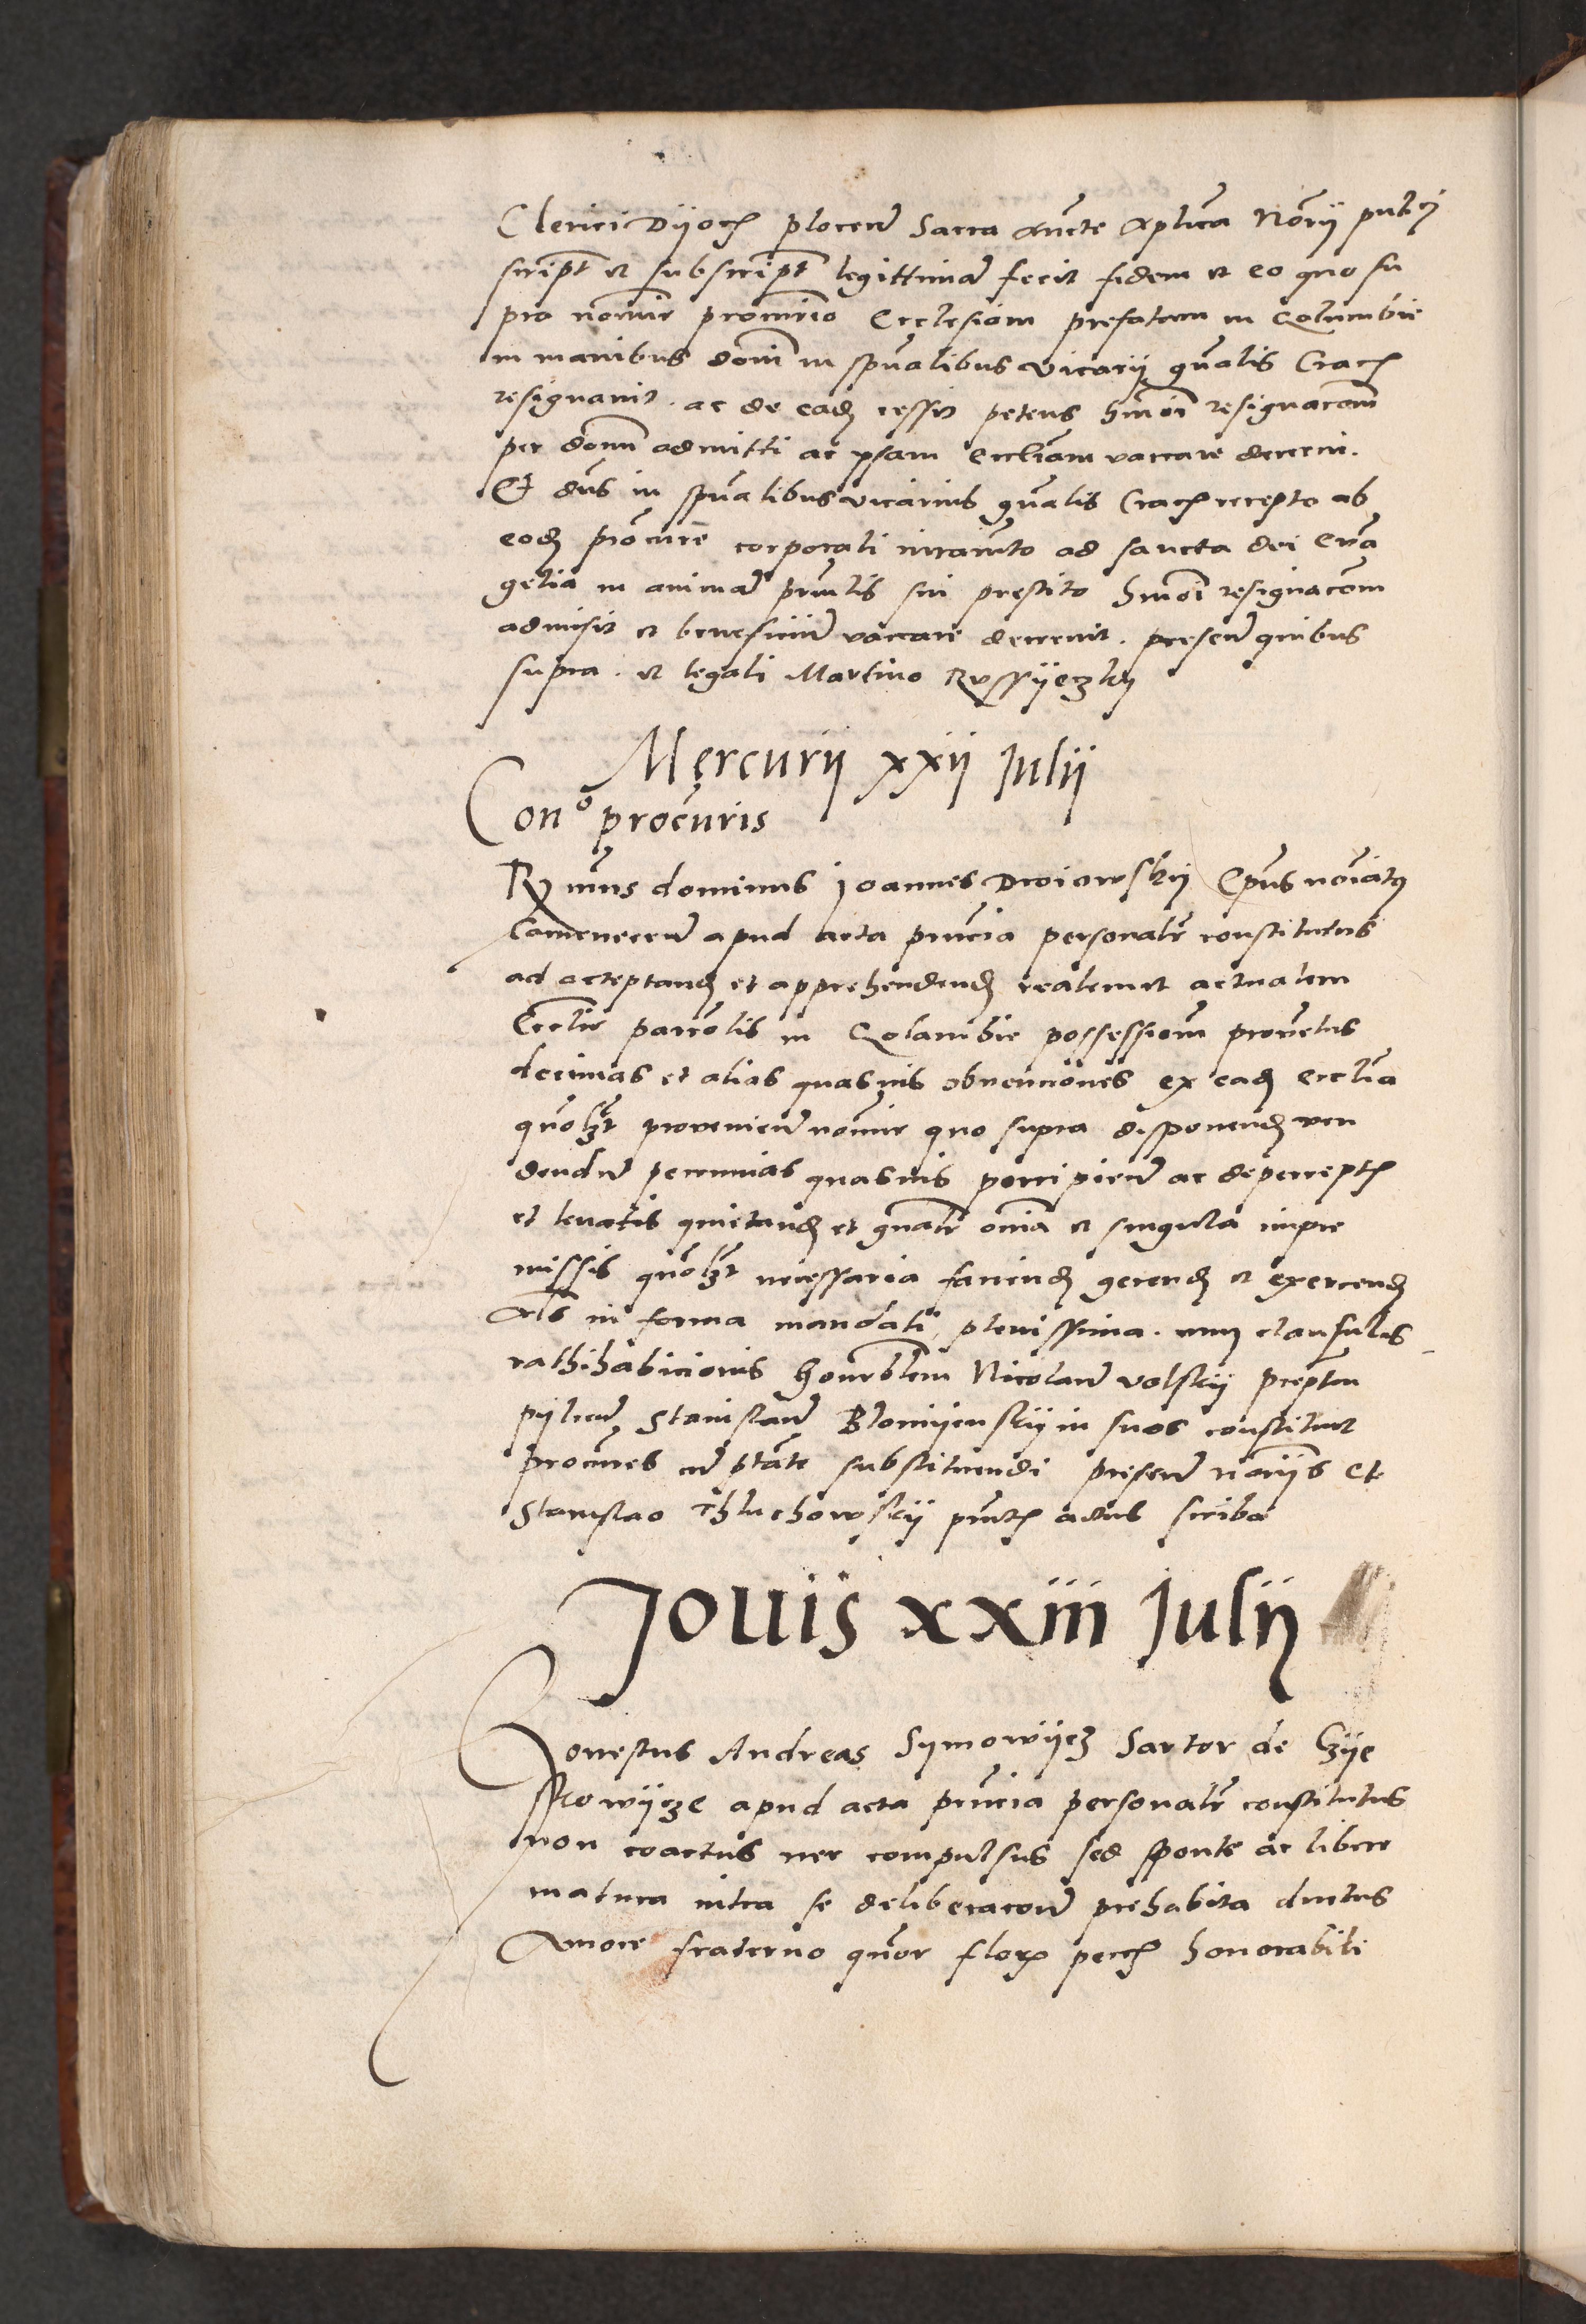 Clerici Dyoc plocen Sacra aucte Aplica Norij publi
script et subscript legittima fecit fidem et eo quo su
pra nomie procurio Ecclesiam prefatam in Columbie
in manibus domi in spualibus vicarij gnalis Crac
resignauit. ac de ead cessit petens hmoi resignacom
per dom admitti ac ipsam Eccliam vaccare decerni.
Et dns in spualibus vicarius gnalis Crac recepto ab
eod procure corporali iuramto ad sancta dei Eua
gelia in anima prinlis sui prestito hmoi resignacom
admisit et beneficiu vaccare decreuit. presen quibus
supra. et legali Martino
Mercurij xxij Julij
Con° procuris
R mus dominus Joannes Droiowskij Epus noiatus
Camenecen apud acta prncia personalr constitutus
ad acceptand et apprehendend realem et actualem
Ecclie parrolis in Colambie possessiom prouetus
decimas et alias quasuis obuenciones ex ead ecclia
quolzt prouenien nomie quo supra disponend ven
dendu pecunias quasuis percipien ac de percept
et leuatis quietand et gnalr omia et singula in pre
missis quolzt necessaria faciend gerend et exercend
Als in forma mandati plenissima. cum clausulis
rathihabicionis honrblem Nicolau volskij preptm
pylcen Stanislau Blonijenskij in suos constituit
procures cu ptate substituendi presen norijs et
Stanislao Thluchowskij prnt actus scriba
Jouis xxiii Julij
Honestus Andreas Symowijcz Sartor de Czije
skowijcze apud acta prncia personalr constitutus
non coactus nec compulsus sed sponte ac libere
matura intra se deliberacone prehabita ductus
Amore fraterno quor flor pecc honorabili